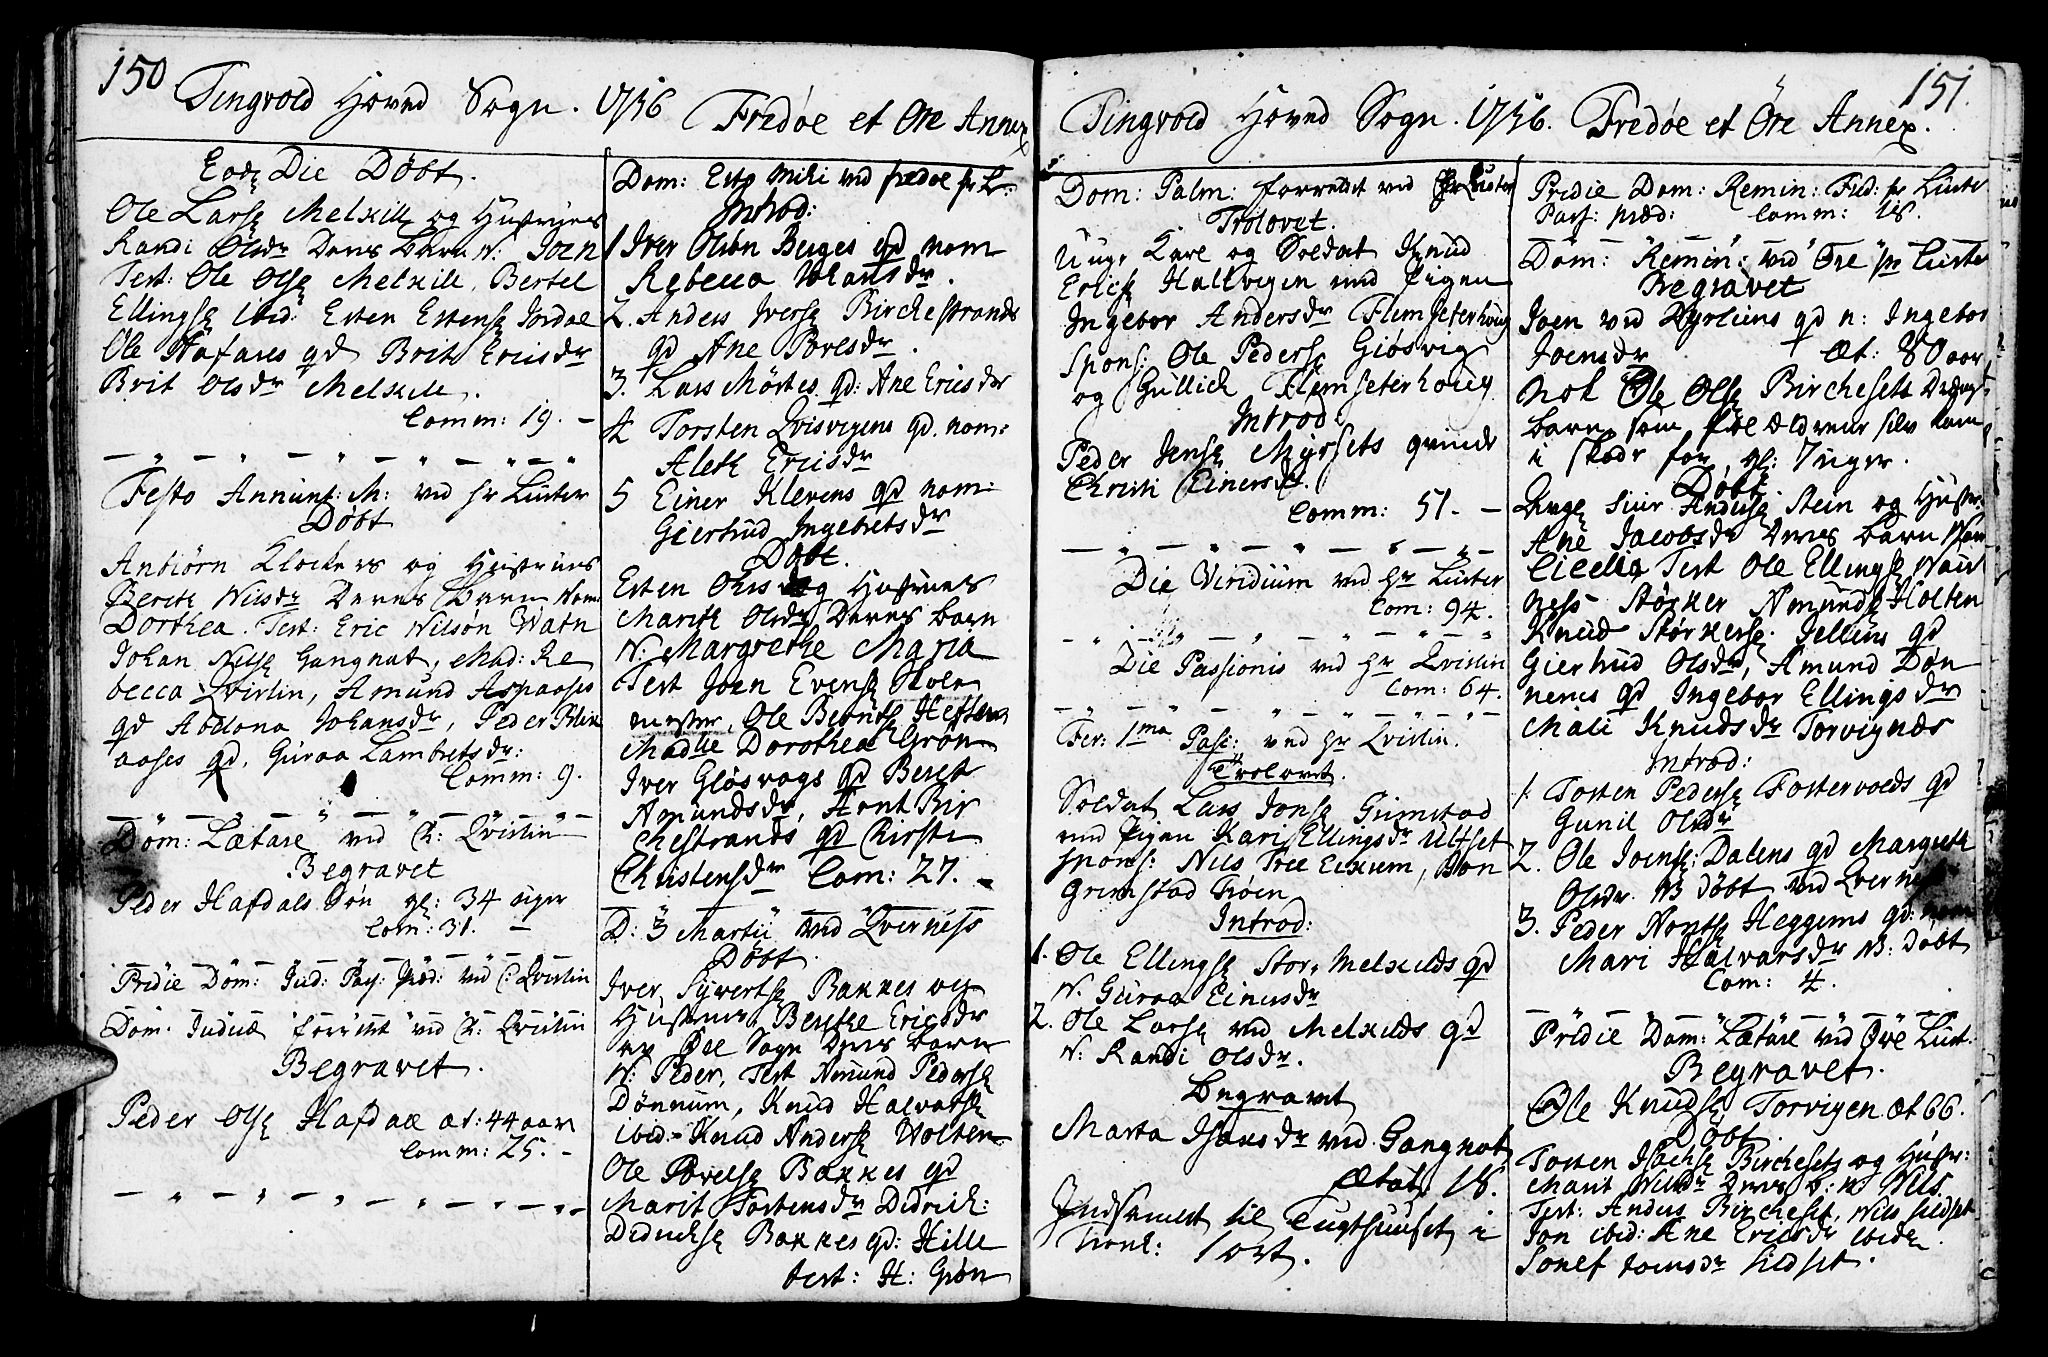 150
Tingvold Hoved Sogn. 1756 Fredøe et Øre Annex
Eod: Die Døbt.
Ole Larsₑ Melkill og Hustrues
Randi Olsdr Deres Barn N: Joen
Test: Ole Olsₑ Melkill, Bertel
Ellingsₑ ibid: Esten Estensₑ Jordal
Ole Hafares qd Brit Ericsdr
Brit Olsdr Melkill.
Comm: 19. –
Festo Annunt: M: ved hr Luster
Døbt
Anbiørn Klockers og Hustrues
Bereth Nilsdr Deres Barn Nom:
Dorthea. Test: Eric Nilsøn Watn
Johan Nilsₑ Gangnat, Mad: Re
becca Qvislin, Amund Aspaases
qd Abelona Johansdr, Peder Blik
aases qd, Guraa Lambretsdr:
Comm: 9.
Dom: Lætare ved C: Qvislin
Begravet
Peder Hafdals Søn gl: 34 uger
Com: 31. –
Pridie Dom: Jud: Pas: Præd: ved C: Qvislin
Dom. Judicæ forrettet ved C: Qvislin
Begravet.
Peder Olsₑ Hafdal æt: 44 aar
Comm: 25. –
Dom: Esto Mihi ved fredøe hr L:
Introd:
1 Iver Olsøn Berges qd nom
Rebecca Johansdr.
2. Anders Iversₑ Birchestrands
qd Ane Povelsdr.
3. Lars Mørtes qd: Ane Ericsdr
4 Torsten Qvisvigens qd. nom:
Aleth Ericsdr
5 Einer Klevens qd nom:
Giertrud Ingebretsdr
Døbt.
Esten og Hustrues
Marith Olsdr Deres Barn
N: Margrethe Maria
Test Joen Evensₑ
mester, Ole Berntsₑ
Madlle Dorothea Grøn
Iver Gløsvogs qd Bereth
Amundsdr, Arnt Bir
chestrands qd Kirsti
Christensdr Com: 27. –
D: 3 Martii ved Qverness
Døbt.
Iver Syvertsₑ Bakkes og
Hustrues Berethe Ericsdr
av Øre Sogn Deres barn
N: Peder, Test Amund Pedersₑ
Dønnum, Knud Halvorsₑ
ibid: Knud Andersₑ Holten
Ole Povelsₑ Bakkes qd
Marit Tostensdr Didrich:
Didrichsₑ Bakkes qd: Hille
bert: H: Grøn
151.
Tingvold Hoved Sogn. 1756. Fredøe et Øre Annex.
Dom: Palm: forrettet ved hr Luster
Trolovet.
Unge Karl og Soldat Knud
Ericsₑ Hallvigen med Pigen
Ingebor Andersdr Flemseterhoug
Spons: Ole Pedersₑ Giøsvig
og Gullich Flemseterhoug
Introd:
Peder Jensₑ Myrsets qvinde
Christi Einersdr.
Comm: 51. –
Die Viridium ved hr Luster
Com: 94.
Die Passionis ved hr Qvislin
Com: 64.
Fer: 1ma Pasc: ved hr Qvislin.
Trolovet.
Soldat Lars Jonsₑ Grimstad
med Pigen Kari Ellingsdr Ulfset
spons: Nils Tree Eikrem, Jon
Grimstad Trøen
Introd:
1. Ole Ellingsₑ Store Melkilds qd
N. Guraa Einersdr
2. Ole Larsₑ ved Melkilds qd
N: Randi Olsdr.
Begravet
Marta Isacsdr ved Gangnat
Ætat: 18.
Indsamlet til Tugthuuset i
Tronh: 1 ort.
Pridie Dom: Remin: Fred: hr Luster
Pass: præd: Comm: 18.
Dom: Remin: ved Øre hr Luster
Begravet
Joen ved Dyrliens qd n: Ingebor
Joensdr Æt: 80 aar
Nok Ole Olsₑ Birchesets Drenge
barn, som forældrene selv kom
i skade for, gl: 7 uger.
Døbt
Unge Siur Andersₑ Stein og Hustr:
Ane Jacobsdr Deres Barn Nom
Cicelia, Test Ole Ellingsₑ Waul
ness Størker Amundsₑ Holten
Knud Størkersₑ Jelluns qd
Giertrud Olsdr, Amund Døn
nems qd Ingebor Ellingsdr
Mali Knudsdr Torvignæs
Introd:
1. Tosten Pedersₑ Fostervolds qd
Gunil Olsdr
2. Ole Joensₑ Dalens qd Margreth
Olsdr. NB Døbt ved Qverness
3. Peder Arntsₑ Heggems qd: nom
Mari Halvorsdr NB: Døbt
Com: 4.
Pridie Dom: Lætare ved Øre Lust:
Begravet.
Ole Knudsₑ Torvigen Æt 66.
Døbt.
Tosten Isachsₑ Bircheset og Hustr:
Marit Nilsdr Deres b: n: Nils
Test: Anders Bircheset, Nils Sildset
Jon ibid: Ane Ericsdr ibid
Sonef Joensdr Sildset.